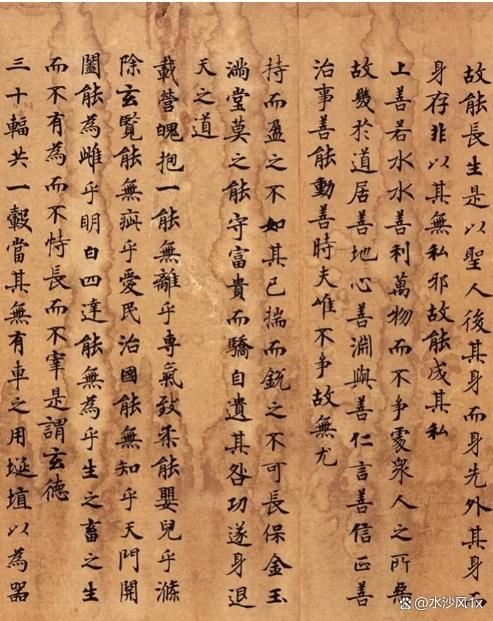 故能長生是以聖人後其身而身先外其身而
身存非以其無私邪故能成其私
上善若水水善利萬物而不爭處衆人之所惡
故幾於道居善地心善淵與善仁言善信正善
治事善能動善時夫唯不爭故無尤
持而盈之不如其已揣而銳之不可長保金玉
滿堂莫之能守富貴而驕自遺其咎功遂身退
天之道
載營魄抱一能無離乎專氣致柔能嬰兒乎滌
除玄覽能無疵乎愛民治國能無知乎天門開
闔能為雌乎明白四達能無為乎生之畜之生
而不有為而不恃長而不宰是謂玄德
三十輻共一轂當其無有車之用埏埴以為器
@水沙风1x